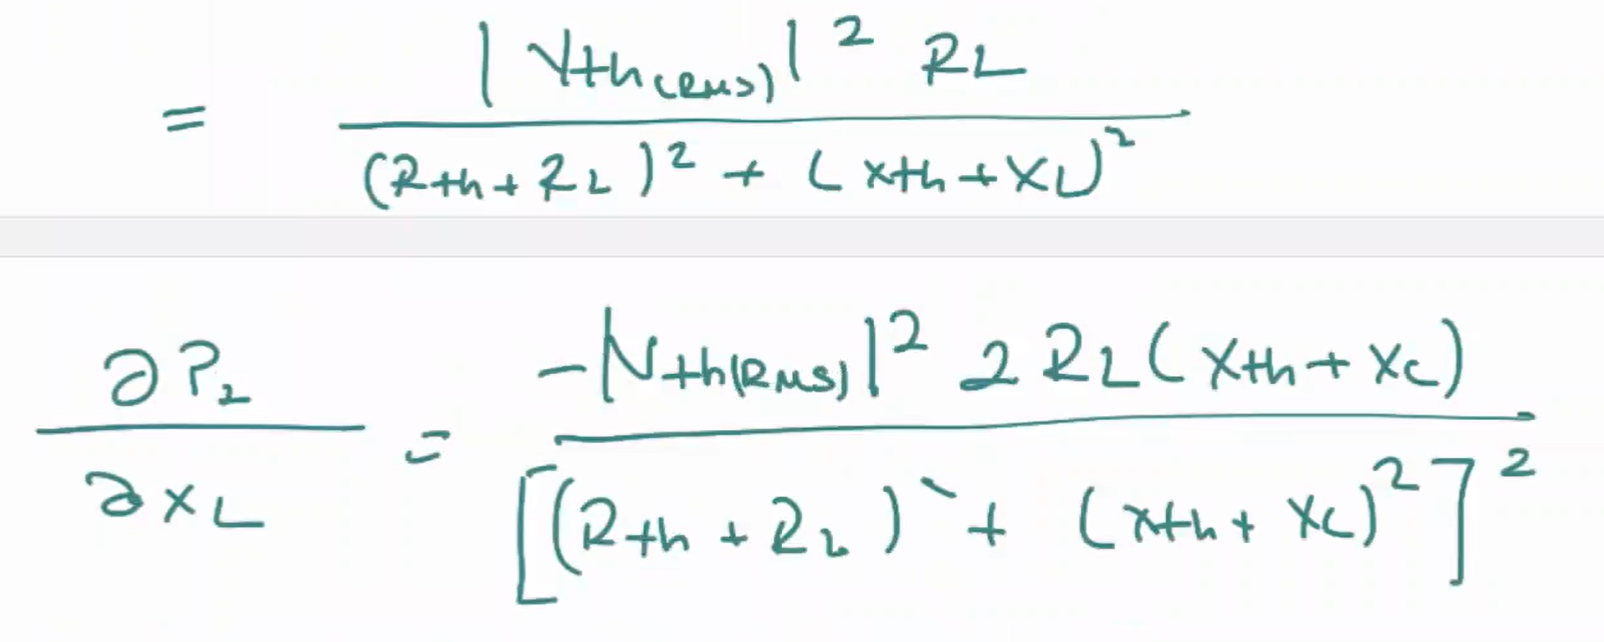 = |Vth(RMS)|² RL / (Rth + RL)² + (Xth + XL)²
∂PL / ∂XL = -|Vth(RMS)|² 2 RL (Xth + XL) / [(Rth + RL)² + (Xth + XL)²]²